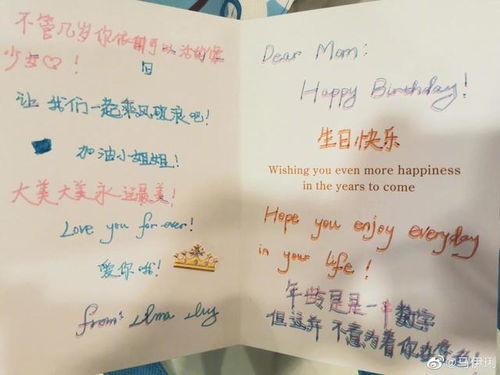 不管几岁你依旧可以活的像
少女♡!
让我们一起乘风破浪吧!
加油小姐姐!
大美大美永远最美!
Love you for ever!
爱你哦!
from:
Dear Mom:
Happy Birthday!
生日快乐
Wishing you even more happiness
in the years to come
Hope you enjoy everyday
in your life!
年龄是是一串数字
但这并不意为着你
@马伊琍